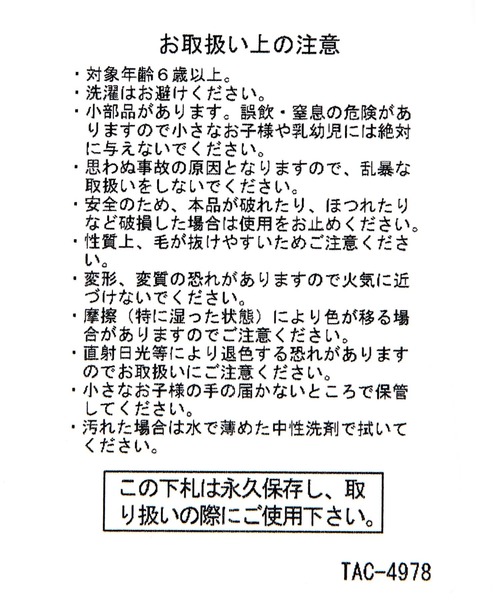 お取扱い上の注意
・対象年齢６歳以上。
・洗濯はお避けください。
・小部品があります。誤飲・窒息の危険があ
りますので小さなお子様や乳幼児には絶対
に与えないでください。
・思わぬ事故の原因となりますので、乱暴な
取扱いをしないでください。
・安全のため、本品が破れたり、ほつれたり
など破損した場合は使用をお止めください。
・性質上、毛が抜けやすいためご注意くださ
い。
・変形、変質の恐れがありますので火気に近
づけないでください。
・摩擦（特に湿った状態）により色が移る場
合がありますのでご注意ください。
・直射日光等により退色する恐れがあります
のでお取扱いにご注意ください。
・小さなお子様の手の届かないところで保管
してください。
・汚れた場合は水で薄めた中性洗剤で拭いて
ください。
この下札は永久保存し、取
り扱いの際にご使用下さい。
TAC-4978